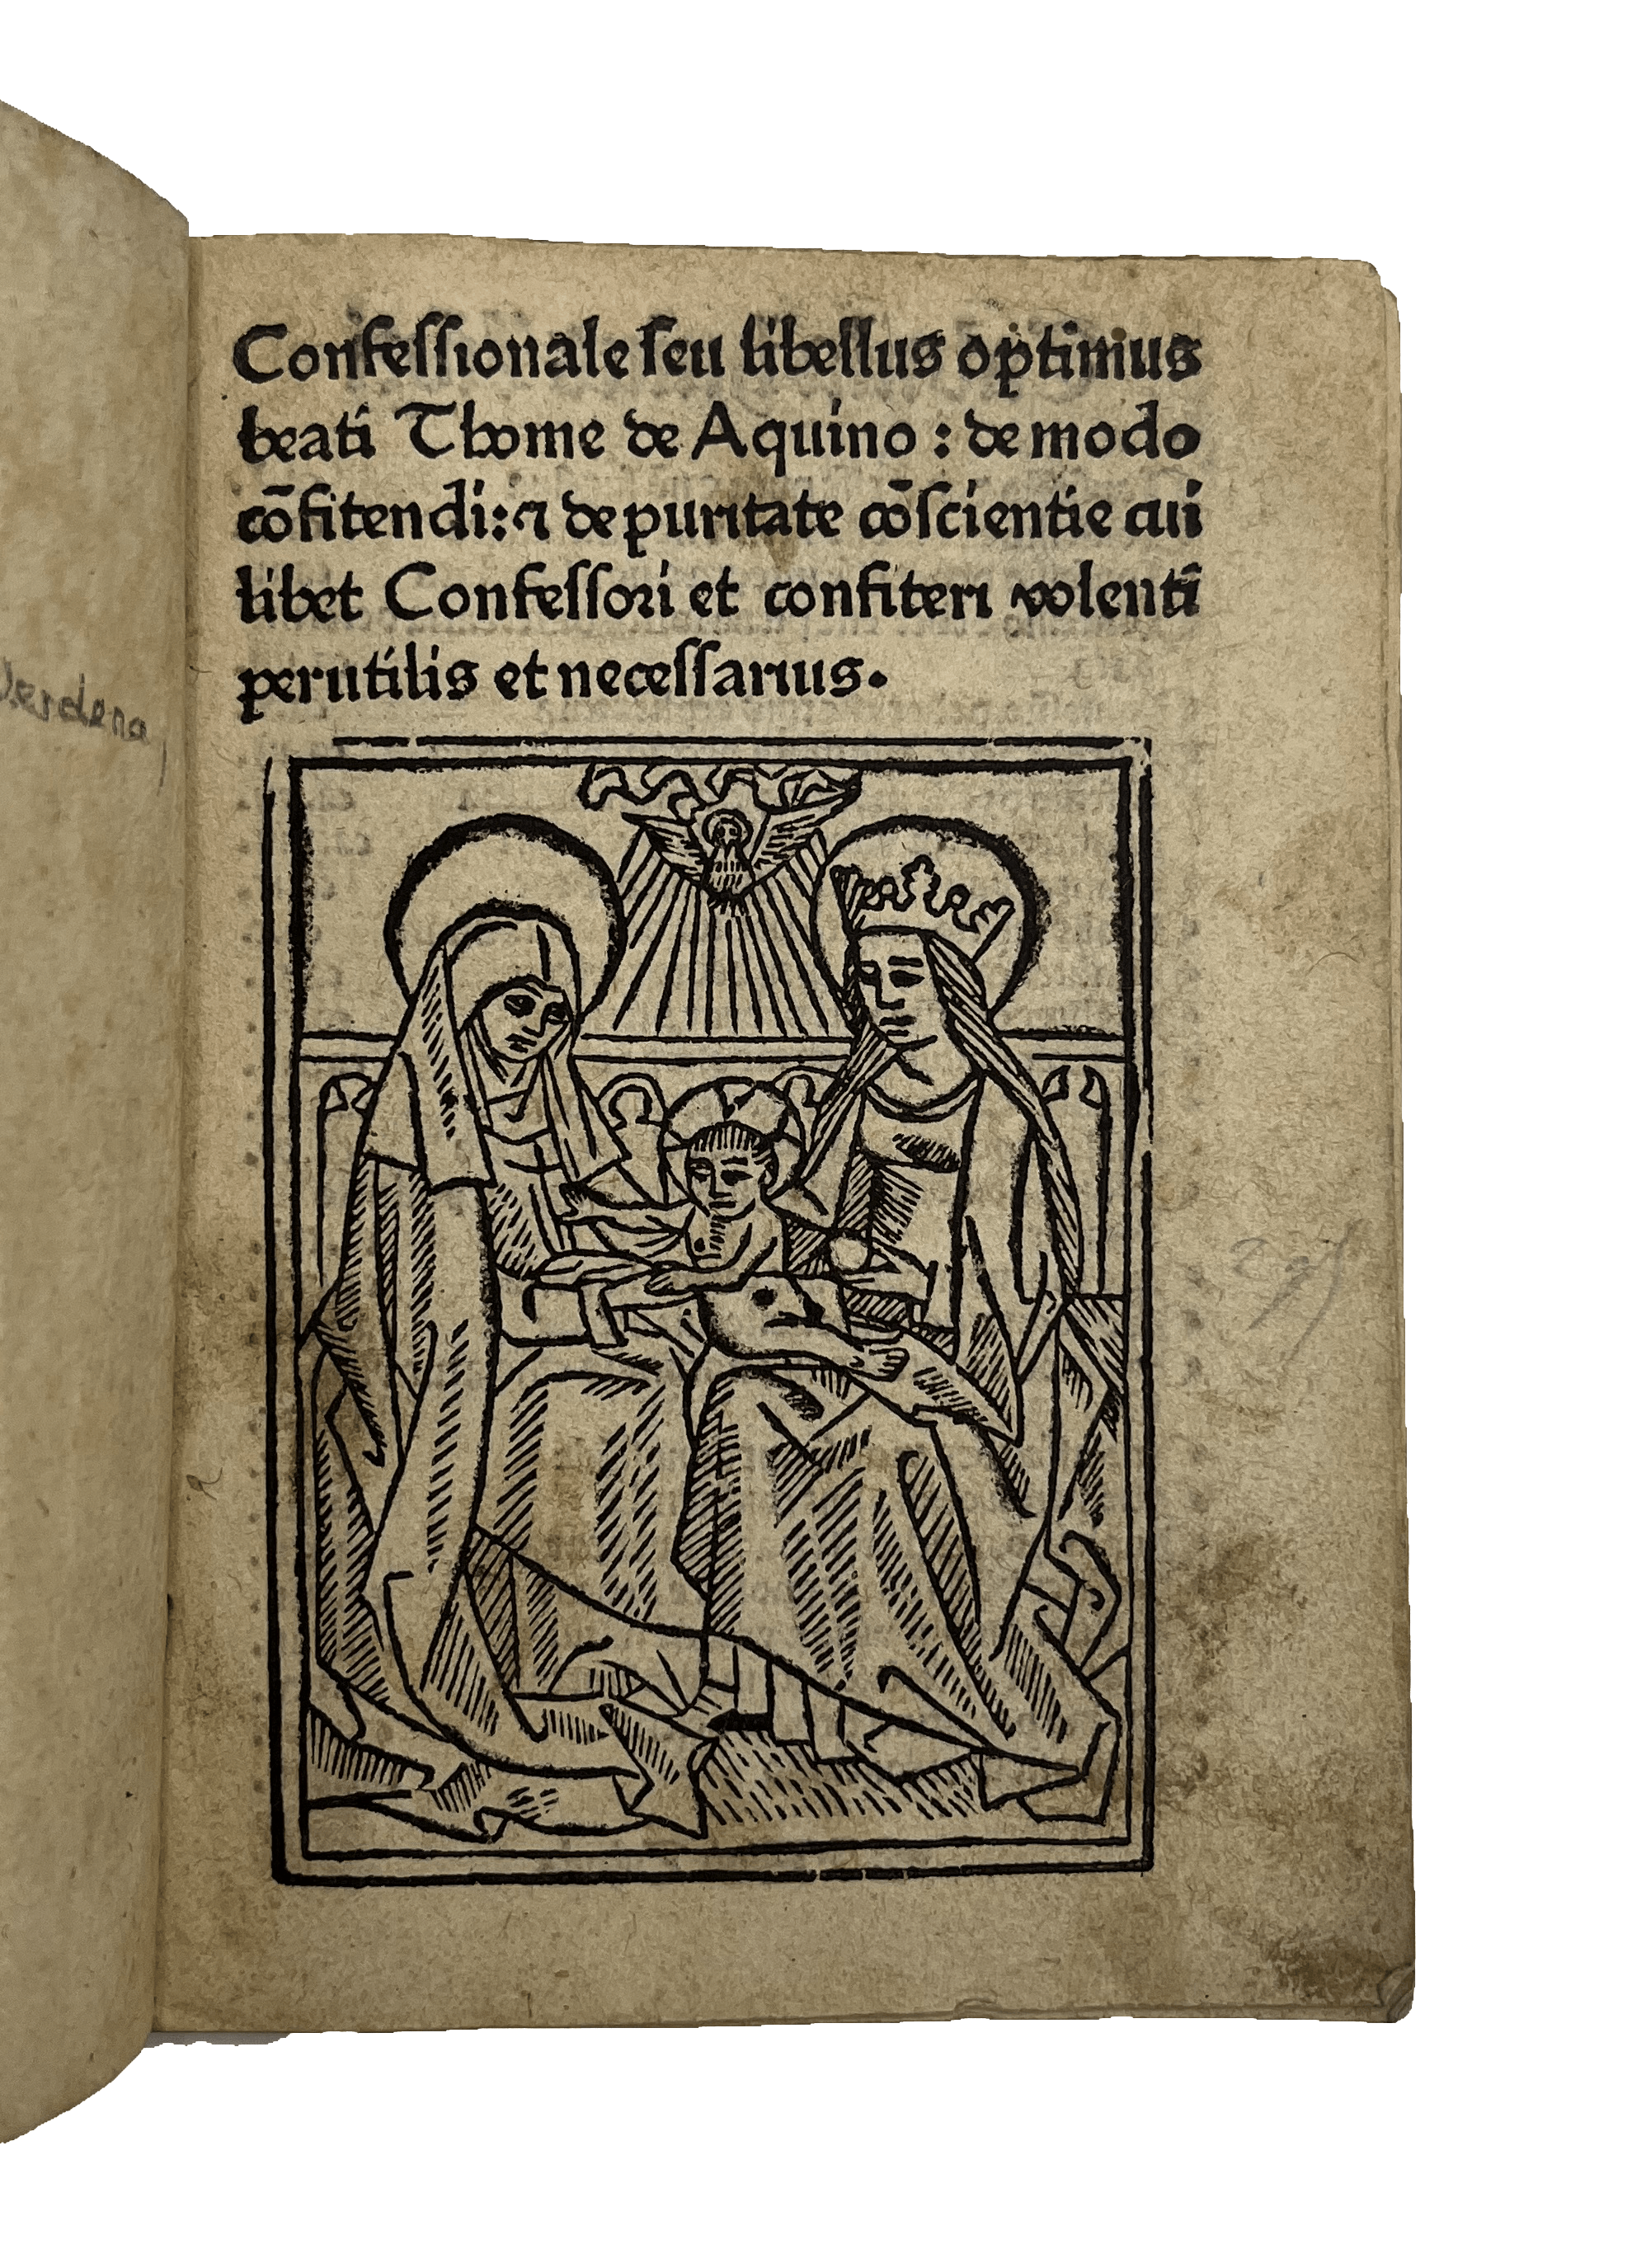 Confeſſionale ſeu libellus optimus
beati Thome de Aquino : de modo
cōfitendi: ⁊ de puritate cōſcientie cui
libet Confeſſoꝛi et confiteri volenti
perutilis et neceſſarius.